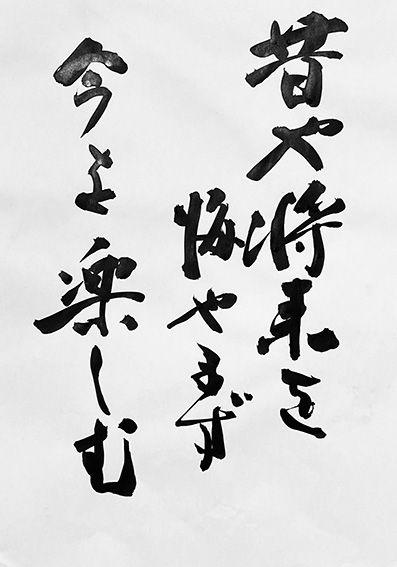 昔や将来を
悔やまず
今を楽しむ